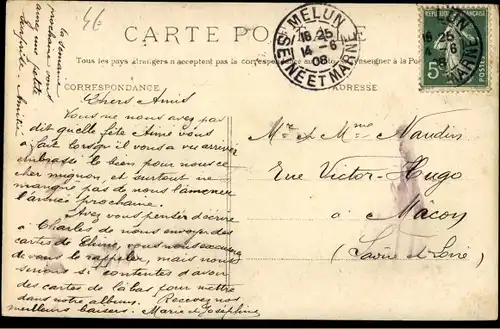 46
CARTE POSTALE
Tous les pays étrangers n'acceptent pas la correspondance
se renseigner à la Poste
CORRESPONDANCE
ADRESSE
MELUN
16 25
14 - 6
08
SEINE ET MARNE
5
la semaine
prochaine vous
aurez une petite
surprise. Amitiés
Chers Amis
Vous ne nous avez pas
dit quelle fête Aimé vous
a fait lorsqu'il vous a vu arriver
embrassez le bien pour nous ce
cher mignon, et surtout ne
manquez pas de nous l'amener
l'année prochaine.
Avez vous pensé d'écrire
à Charles de nous envoyer des
cartes de Chine, vous nous excuserez
de vous le rappeler, mais nous
serions si contentes d'avoir
des cartes de là bas pour mettre
dans notre album. Recevez nos
meilleurs baisers. Marie et Joséphine
Mr et Mme Naudin
Rue Victor-Hugo
à Mâcon
(Saône et Loire)